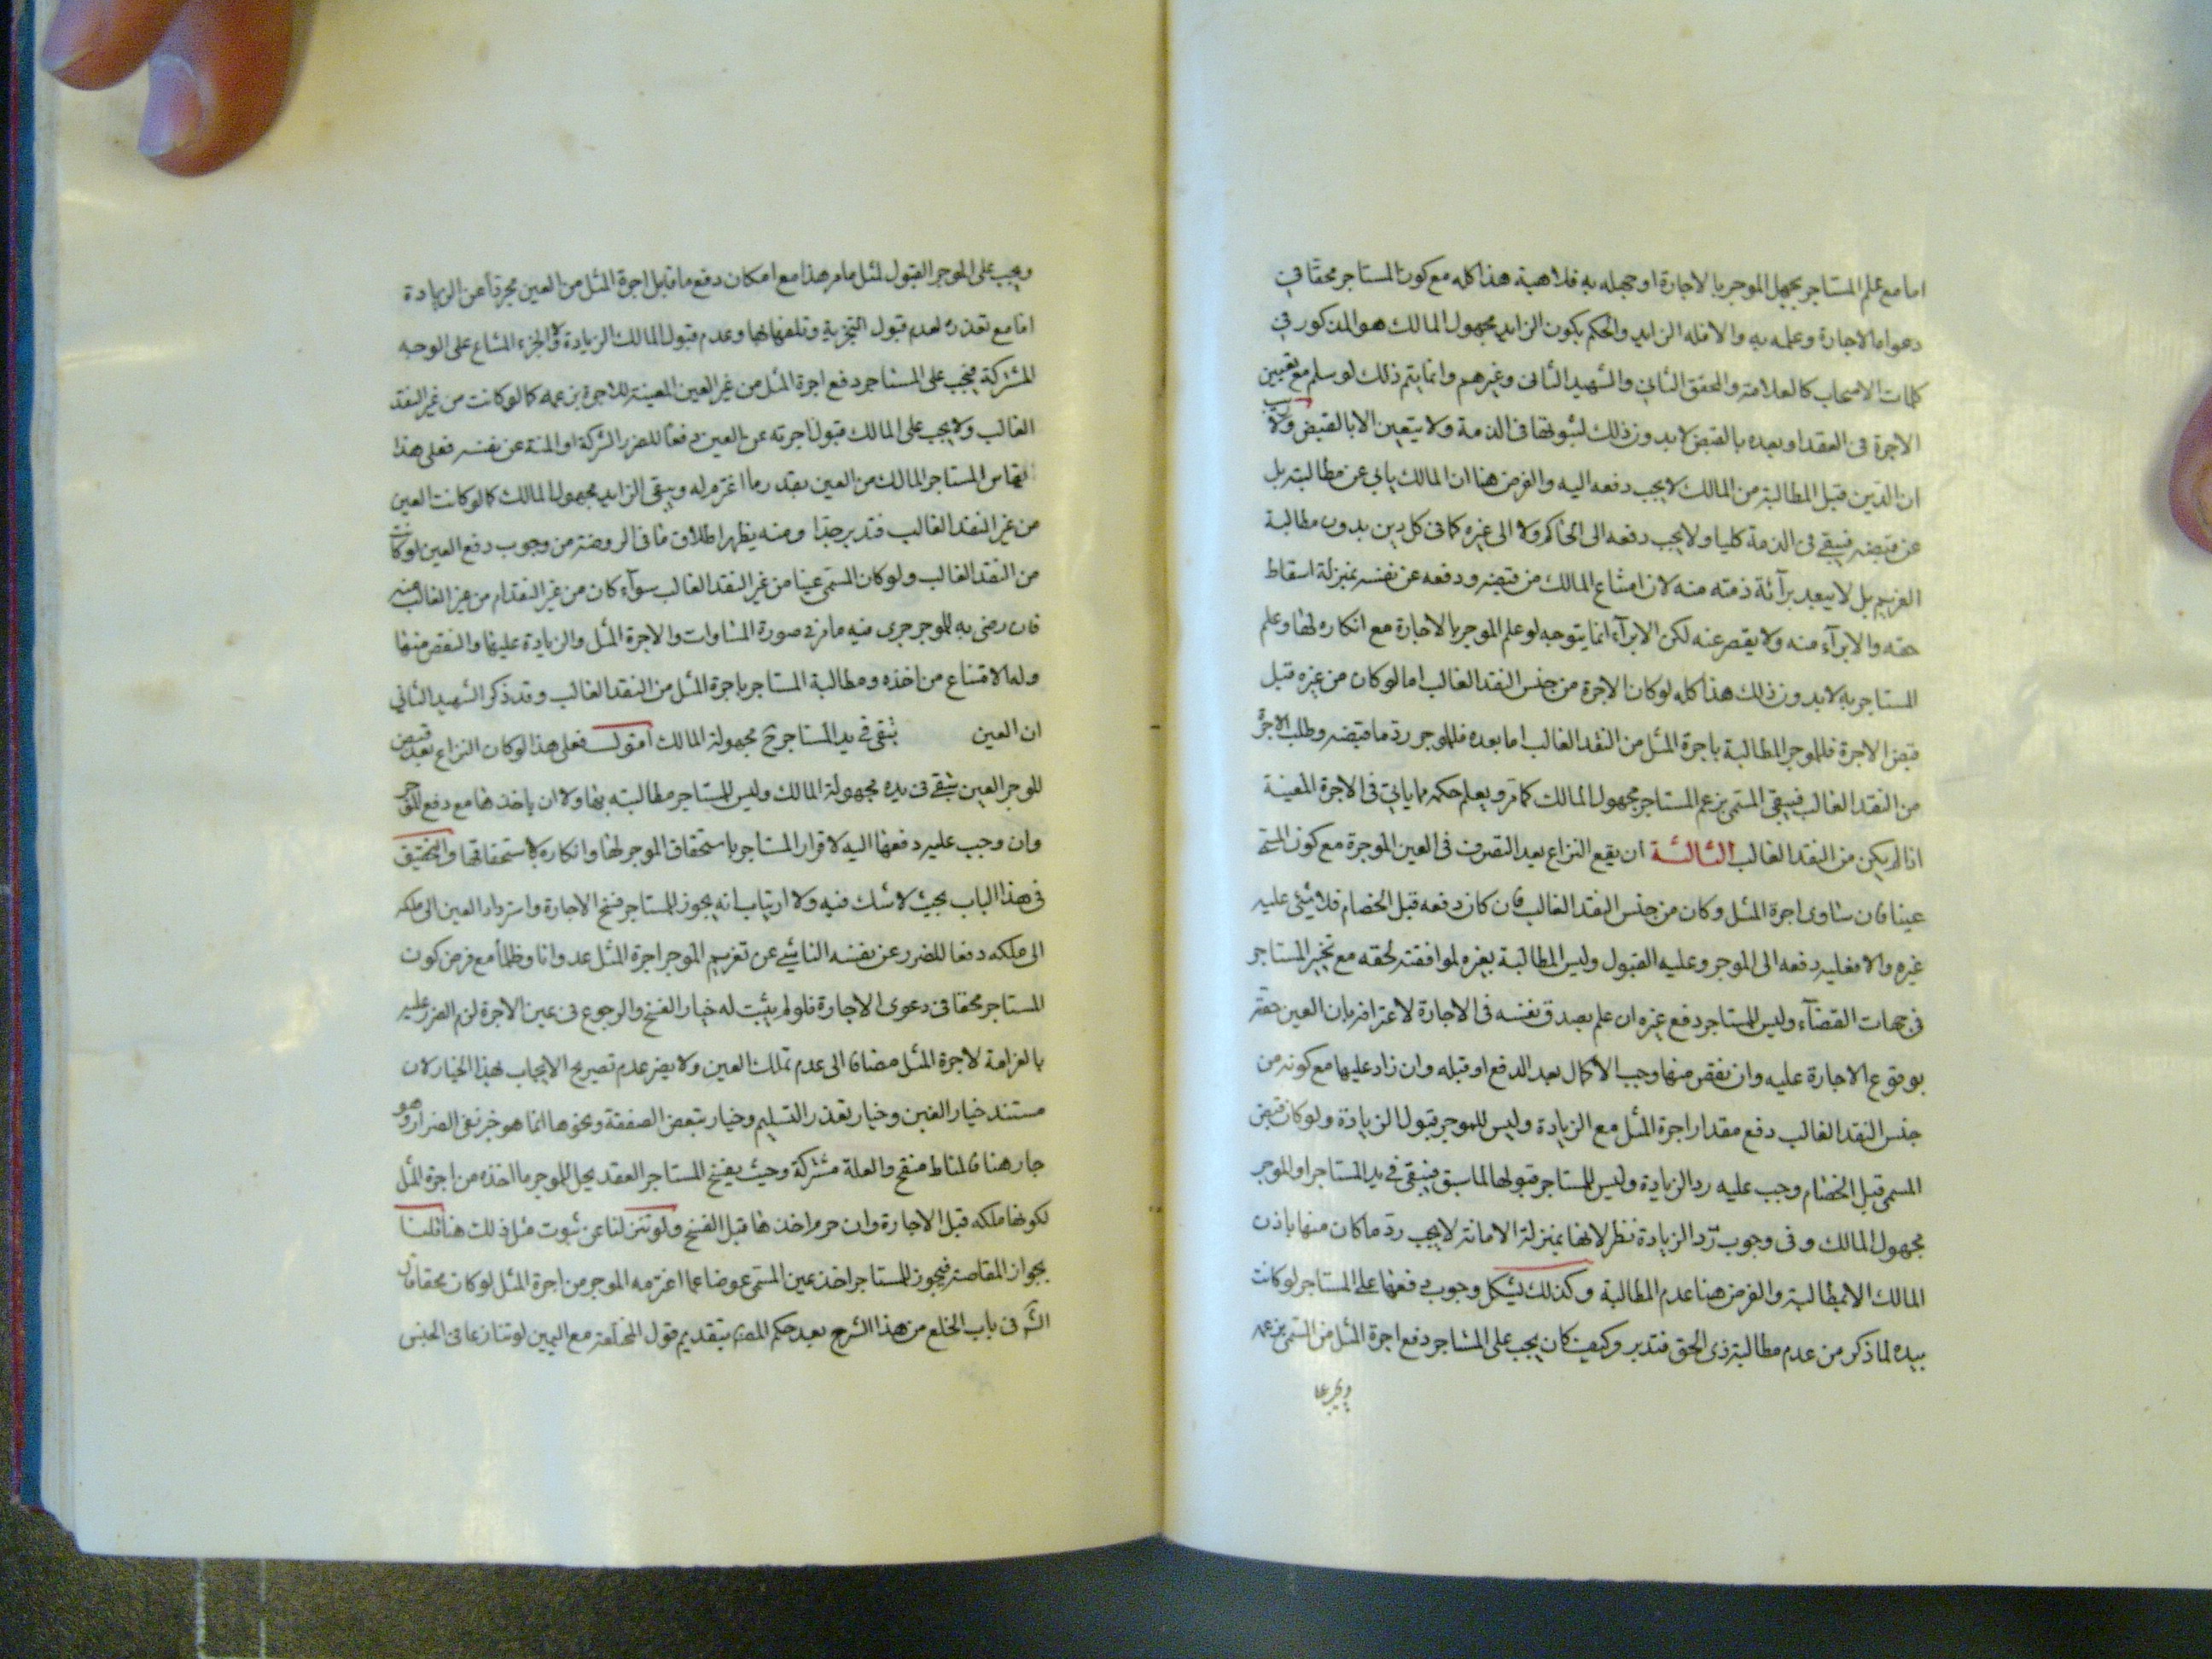 اما مع علم المستاجر بجهل الموجر بالاجارة او جهله به فلا هبة هذا كله مع كون المستاجر محقا في
دعواه الاجارة وعلمه به والا فله الزايد والحكم بكون الزايد مجهول المالك هو المذكور في
كلمات الاصحاب كالعلامة والمحقق الثاني والشهيد الثاني وغيرهم وانما يتم ذلك لو سلم مع تعيين
الاجرة في العقد او بعده بالقبض لا بدون ذلك لثبوتها في الذمة ولا يتعين الا بالقبض ولا
ان الدين قبل المطالبة من المالك لا يجب دفعه اليه والفرض هنا ان المالك يابى عن مطالبته بل
عن قبضه فيبقى في الذمة كليا ولا يجب دفعه الى الحاكم ولا الى غيره كما في كل دين بدون مطالبة
الغريم بل لا يبعد برآئة ذمته منه لان امتناع المالك من قبضه ودفعه عن نفسه بمنزلة اسقاط
حقه والابرآء منه ولا يقصر عنه لكن الابرآء انما يتوجه لو علم الموجر بالاجارة مع انكاره لها وعلم
المستاجر به لا بدون ذلك هذا كله لو كان الاجرة من جنس النقد الغالب اما لو كان من غيره قبل
قبض الاجرة فللموجر المطالبة باجرة المثل من النقد الغالب اما بعده فللموجر رد ما قبضه وطلب الاجرة
من النقد الغالب فيبقى المسمى بزعم المستاجر مجهول المالك كما مر ويعلم حكمه مما ياتي في الاجرة المعينة
اذا لم يكن من النقد الغالب الثالثة ان يقع النزاع بعد التصرف في العين الموجرة مع كون المسمى
عينا فان ساوى اجرة المثل وكان من جنس النقد الغالب فان كان دفعه قبل الخصام فلا شئ عليه
غيره والا فعليه دفعه الى الموجر وعليه القبول وليس المطالبة بغيره لموافقته لحقه مع تخير المستاجر
في جهات القضآء وليس للمستاجر دفع غيره ان علم بصدق نفسه في الاجارة لاعترافه بان العين حقه
بوقوع الاجارة عليه وان نقص منها وجب الاكمال بعد الدفع او قبله وان زاد عليها مع كونه من
جنس النقد الغالب دفع مقدار اجرة المثل مع الزيادة وليس للموجر قبول الزيادة ولو كان قبض
المسمى قبل الخصام وجب عليه رد الزيادة وليس للمستاجر قبولها لما سبق فيبقى في يد المستاجر او الموجر
مجهول المالك وفي وجوب رد الزيادة نظر لانها بمنزلة الامانة لا يجب رد ما كان منها باذن
المالك الا بمطالبته والفرض هنا عدم المطالبة وكذلك يشكل وجوب دفعها على المستاجر لو كانت
بيده لما ذكر من عدم مطالبة ذى الحق فتدبر وكيف كان يجب على المستاجر دفع اجرة المثل من المسمى بزعمه
ويجب على الموجر القبول لمثل ما مر هذا مع امكان دفع ما قابل اجرة المثل من العين مجردا عن الزيادة
اما مع تعذره لعدم قبول التجزية وتلفها بها وعدم قبول المالك الزيادة ولا الجزء المشاع على الوجه
المشتركة فيجب على المستاجر دفع اجرة المثل من غير العين المعينة للاجرة بزعمه كما لو كانت من غير النقد
الغالب ولا يجب على المالك قبول اجرته عن العين دفعا للضرر الشركة او المنة عن نفسه فعلى هذا
يقاص المستاجر المالك من العين بقدر ما اغترم له ويبقى الزايد مجهول المالك كما لو كانت العين
من غير النقد الغالب فتدبر جدا ومنه يظهر اطلاق ما في الروضة من وجوب دفع العين لو كانت
من النقد الغالب ولو كان المسمى عينا من غير النقد الغالب سوآء كان من غير النقد ام من غير الغالب منه
فان رضى به الموجر جرى فيه ما مر في صورة المساوات والاجرة المثل والزيادة عليها والنقص منها
وله الامتناع من اخذه ومطالبة المستاجر باجرة المثل من النقد الغالب وقد ذكر الشهيد الثاني
ان العين تبقى في يد المستاجر ح مجهولة المالك اقول فعلى هذا لو كان النزاع بعد قبض
الموجر العين يبقى في يده مجهولة المالك وليس للمستاجر مطالبته بها ولا ان ياخذها مع دفع الموجر
وان وجب عليه دفعها اليه لاقرار المستاجر باستحقاق الموجر لها وانكاره لاستحقاقها والتحقيق
في هذا الباب بحيث لا شك فيه ولا ارتياب انه يجوز للمستاجر فسخ الاجارة واسترداد العين الى ملكه
الى ملكه دفعا للضرر عن نفسه الناشئ عن تغريم الموجر اجرة المثل عدوانا وظلما مع فرض كون
المستاجر محقا في دعوى الاجارة فلو لم يثبت له خيار الفسخ والرجوع في عين الاجرة لزم الضرر عليه
بالغرامة لاجرة المثل مضافا الى عدم تملك العين ولا يضر عدم تصريح الاصحاب بهذا الخيار لان
مستند خيار الغبن وخيار تعذر التسليم وخيار تبعض الصفقة ونحوها انما هو خبر نفى الضرار وهو
جار هنا فالمناط منقح والعلة مشتركة وحيث يفسخ المستاجر العقد يحل للموجر ما اخذه من اجرة المثل
لكونها ملكه قبل الاجارة وان حرم اخذها قبل الفسخ ولو تنزلنا عن ثبوت مثل ذلك هنا قلنا
بجواز المقاصة فيجوز للمستاجر اخذ عين المسمى عوضا عما اغترمه الموجر من اجرة المثل لو كان محقا قال
في باب الخلع من هذا الشرح بعد حكم المص بتقديم قول المختلعة مع اليمين لو تنازعا في الجنس